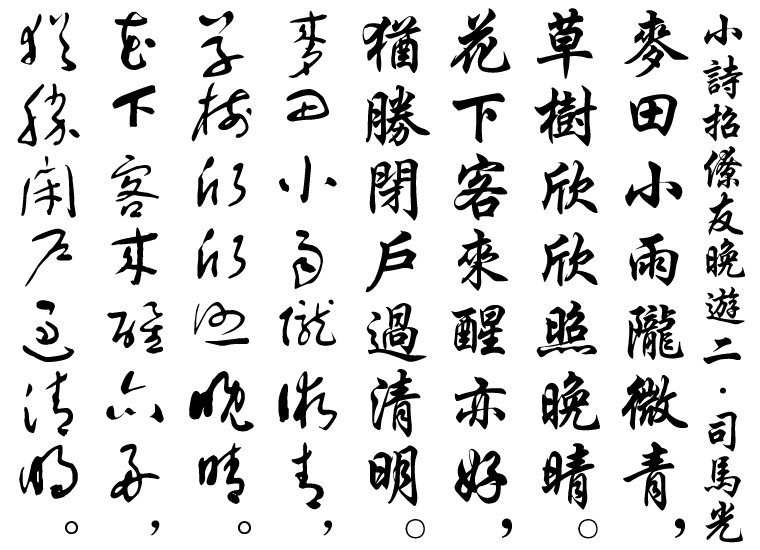 小詩招僚友晚遊二·司馬光
麥田小雨隴微青，
草樹欣欣照晚晴。
花下客來醒亦好，
猶勝閉戶過清明。
麥田小雨隴微青，
草樹欣欣照晚晴。
花下客來醒亦好，
猶勝閉戶過清明。